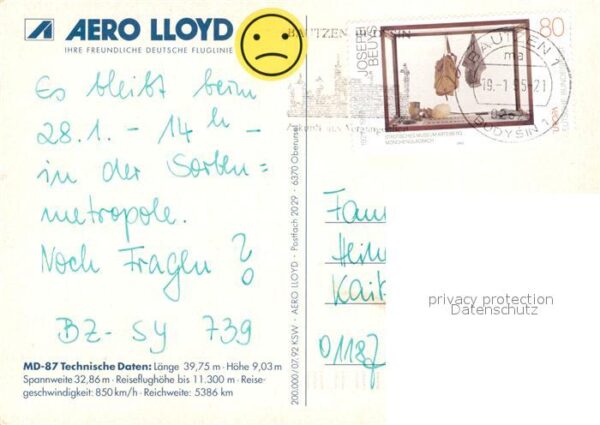 AERO LLOYD
IHRE FREUNDLICHE DEUTSCHE FLUGLINIE
Es bleibt beim
28.1. - 14 h -
in der Sorben=
metropole.
Noch Fragen?
BZ - SY 739
MD-87 Technische Daten: Länge 39,75 m · Höhe 9,03 m
Spannweite 32,86 m · Reiseflughöhe bis 11.300 m · Reise-
geschwindigkeit: 850 km/h · Reichweite: 5386 km
200.000/07.92 KSW · AERO LLOYD · Postfach 2029 · 6370 Oberursel
BAUTZEN BUDYŠIN
JOSEPH
BEUYS
80
STÄDTISCHES MUSEUM ABTEIBERG
MÖNCHENGLADBACH
BAUTZEN 1
ma
19.-1.95-21
BUDYŠIN 1
Kait
01187
privacy protection
Datenschutz